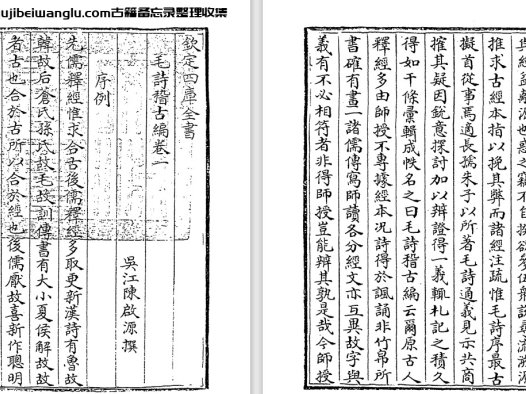 ujibeiwanglu.com古籍备忘录整理收集
欽定四庫全書
毛詩稽古編卷一
吳江陳啟源撰
序例
先儒釋經惟求合古後儒釋經多取更新漢詩有魯故
韓故后蒼氏孫氏故毛故訓傳書有大小夏侯解故故
者古也合於古所以合於經也後儒厭故喜新作聰明
源也惑之竊不自揆欲參伍衆說尋流溯源
推求古經本指以挽其弊而諸經注疏惟毛詩序最古
擬首從事焉適長孺朱子以所著毛詩通義見示共商
搉其疑因銳意探討加以辨證得一義輒札記之積久
得如干條彙輯成帙名之曰毛詩稽古編云爾原古人
釋經多由師授不專據經本况詩得於諷誦非竹帛所
書確有畫一諸儒傳寫師讀各分經文亦互異故字與
義有不必相符者非得師授豈能辨其孰是哉今師授